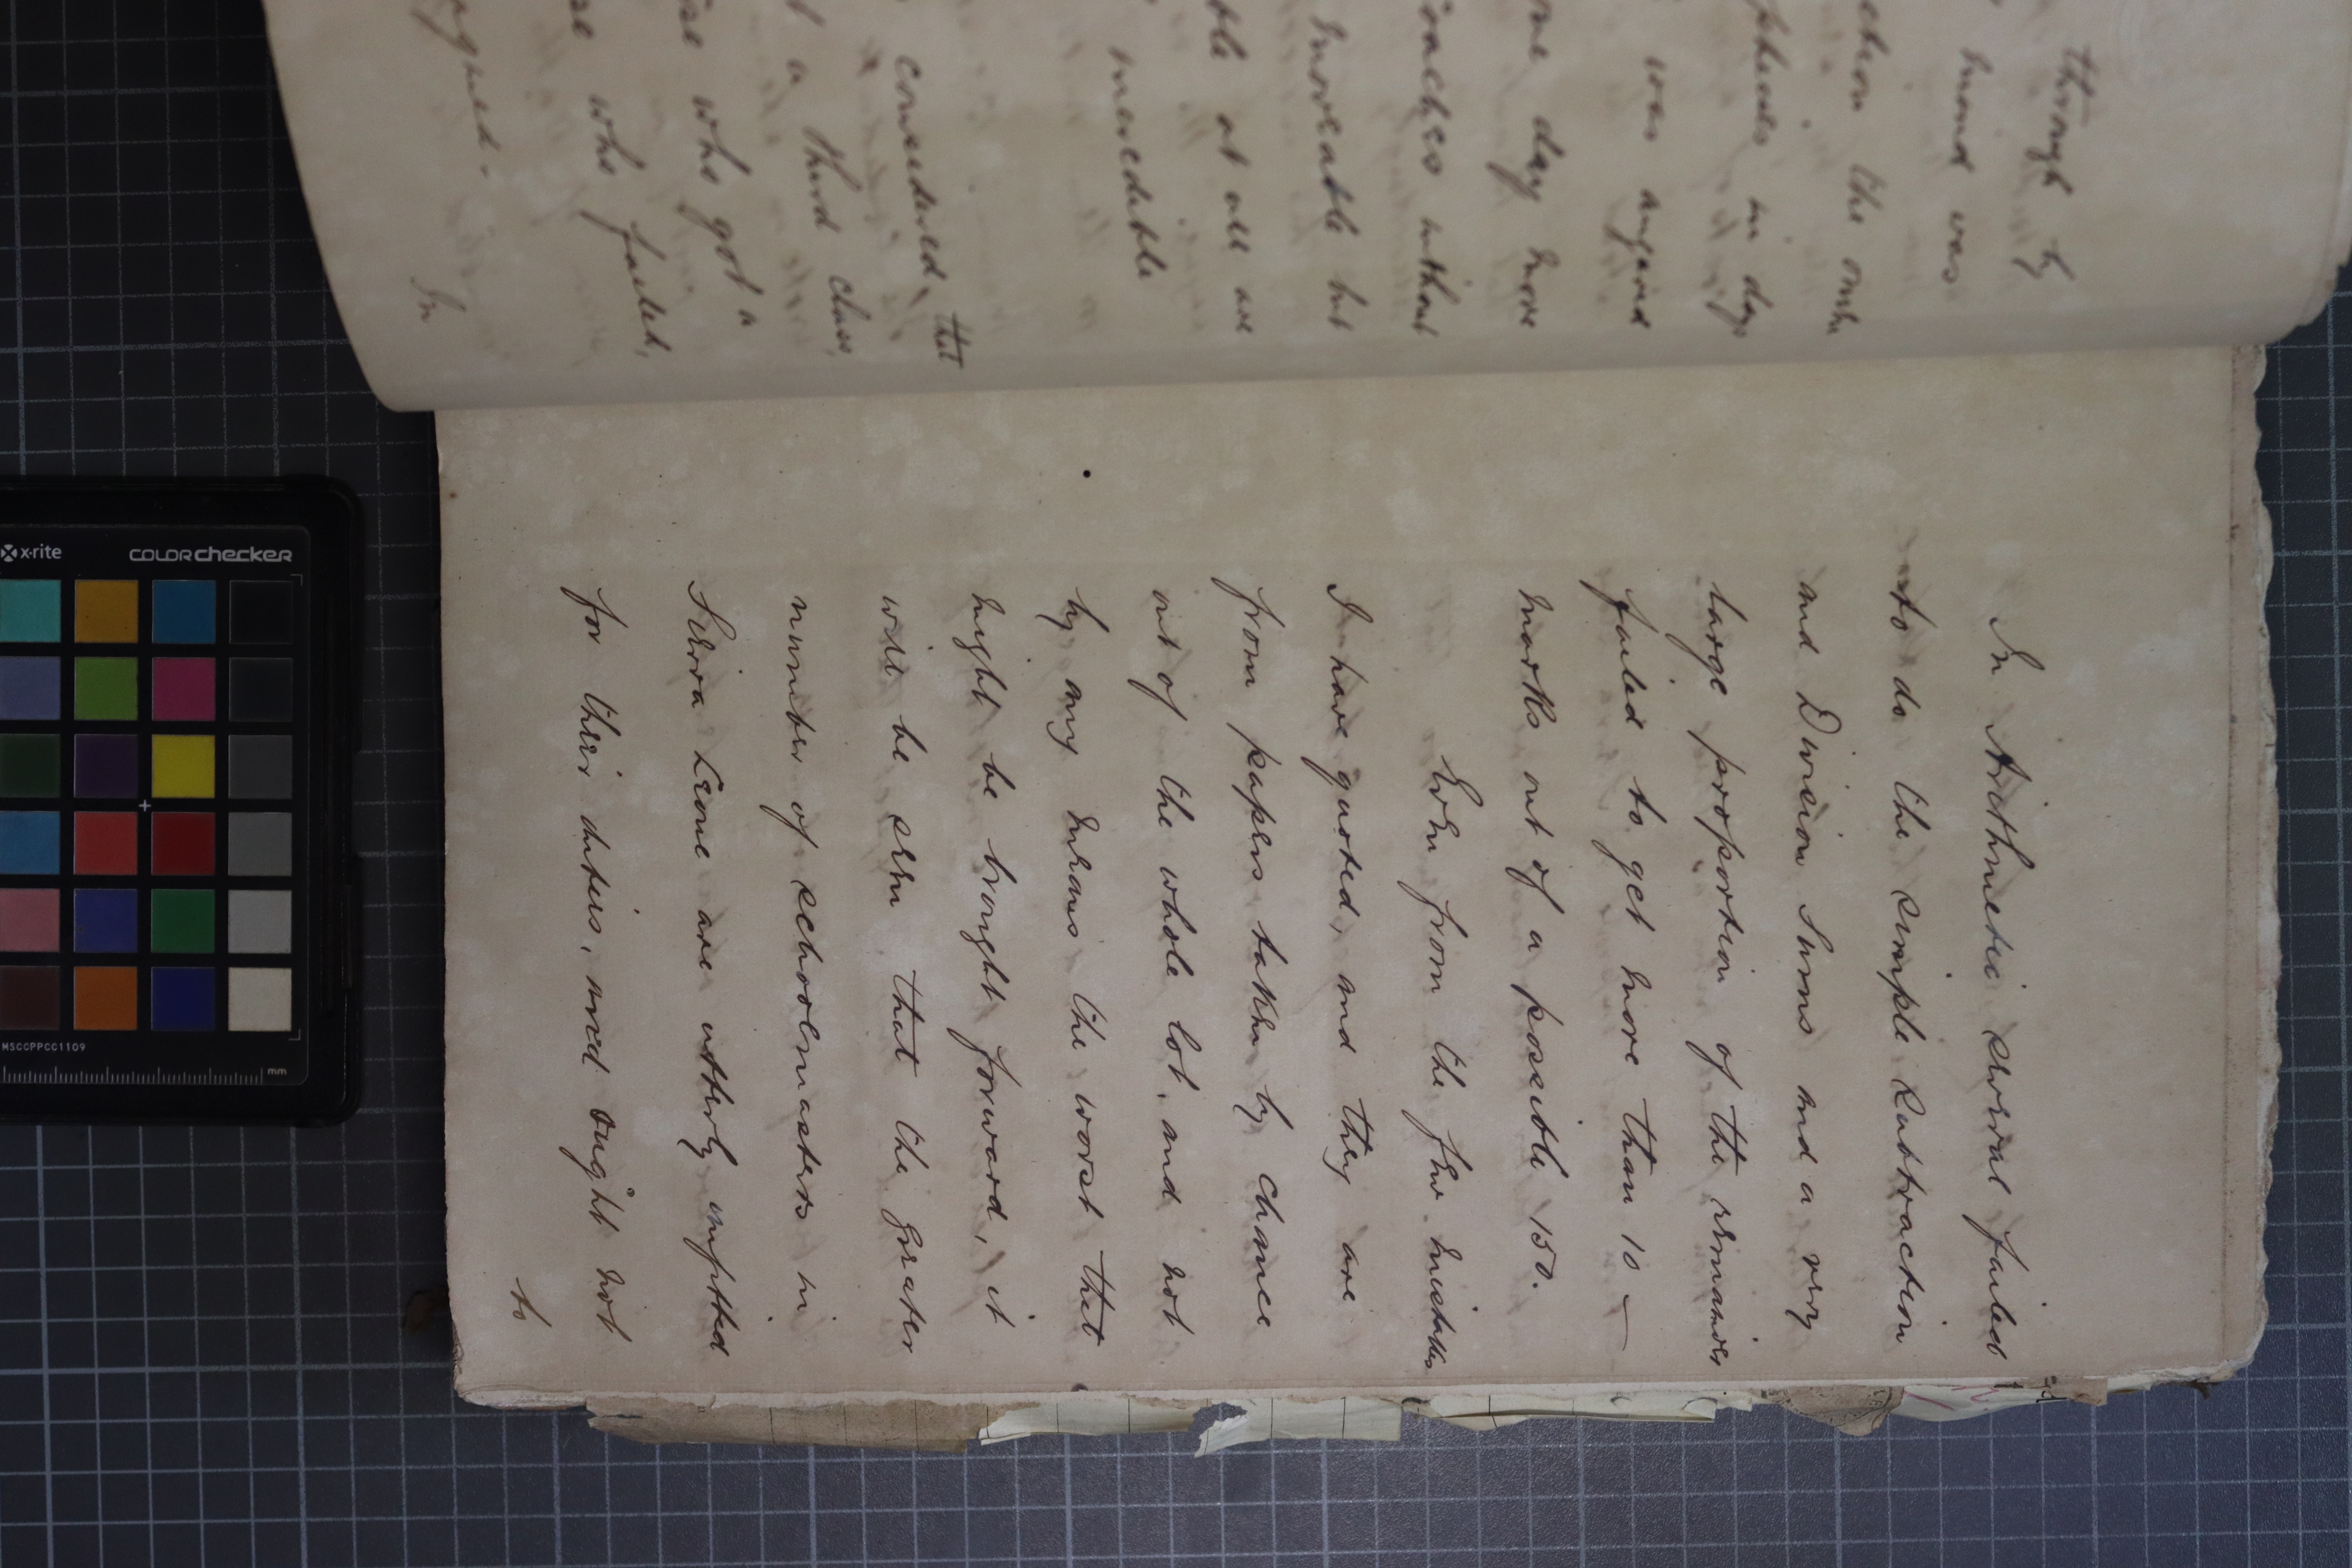 through by
mind was
the
in days
was
one day more
without
but
ble at all are
incredible
considered that
t a third class,
se who got a
se who failed,
In
In Arithmetic several failed
to do the simple Subtraction
and Division Sums and a very
large proportion of the remainder
failed to get more than 10 —
marks out of a possible 150.
Even from the few mistakes
I have quoted, and they are
from papers taken by chance
out of the whole lot, and not
by any means the worst that
might be brought forward, it
will be seen that the greater
number of schoolmasters in
Sierra Leone are utterly unfitted
for their duties, and ought not
to
x·rite
COLORchecker
MSCCPPCC1109
mm